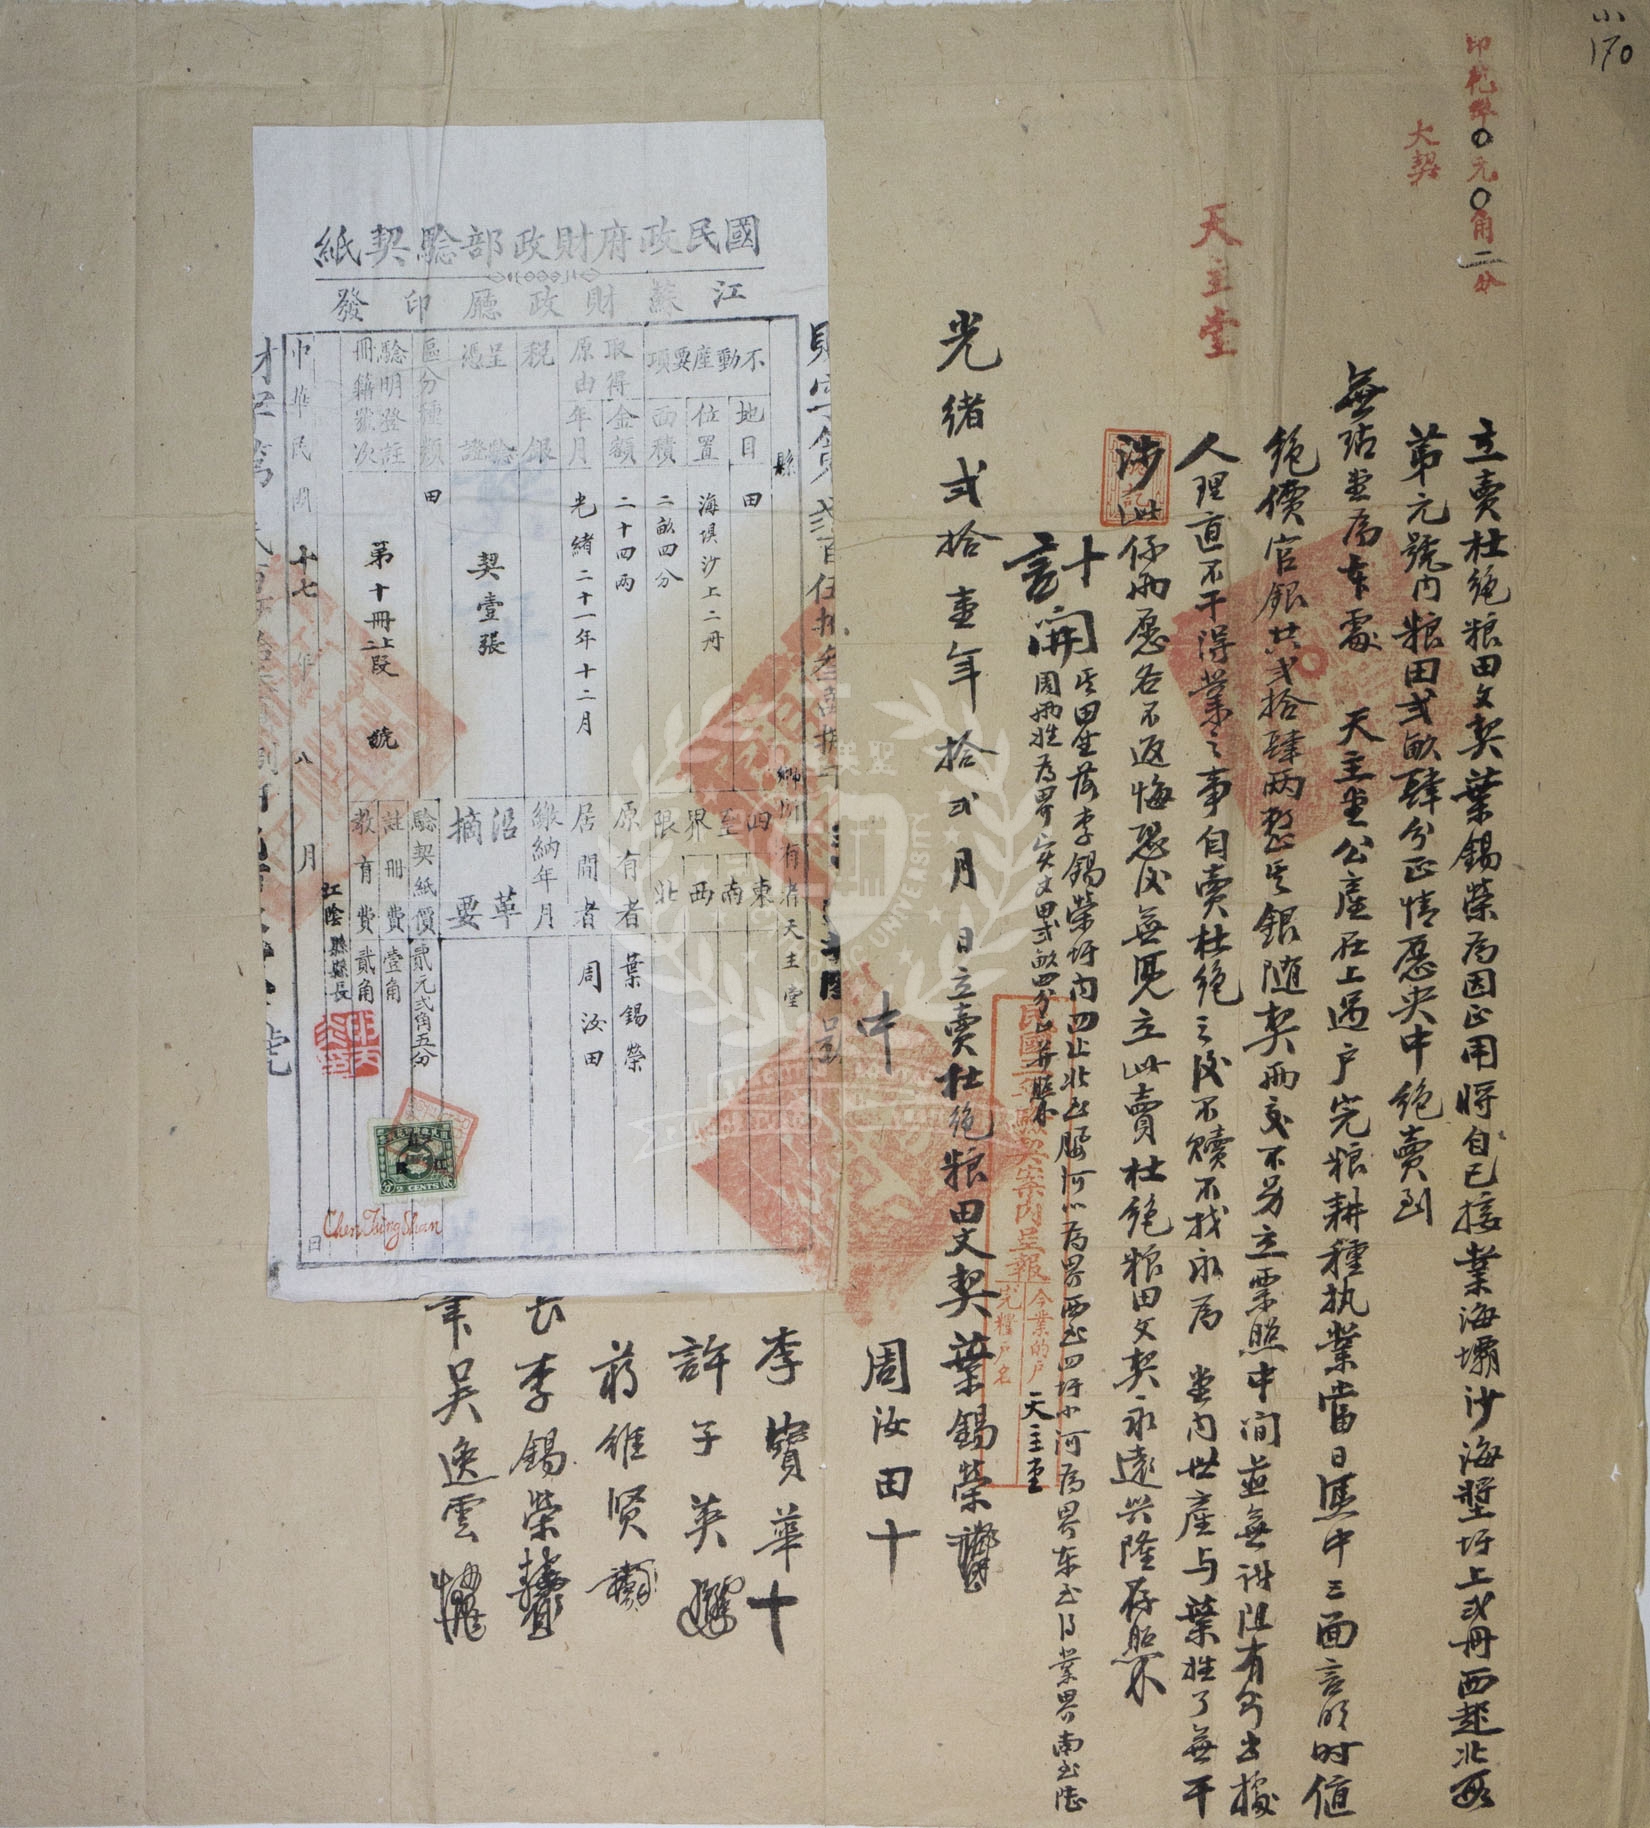 小
170
印花準0元0角二分
大契
天主堂
立賣杜絕粮田文契葉錫榮為因正用將自己接業海壩沙海塋圩上弍冊西起北叚
第元號內粮田弍畝肆分正情愿央中絕賣到
無玷堂為本處 天主堂公產在上過户完粮耕種执業當日憑中三面言明時值
絕價官銀共弍拾肆两整其銀随契兩交不另立票照中间並無謝阻有分出據
人理直不干得業之事自賣杜絕之后不贖不找永為 堂內世產与葉姓了無干
涉此係兩愿各不返悔恐后無凴立此賣杜絕粮田文契永遠興隆存照
計開 其田坐落李錫榮圩內四止北至腰河心為界西至四圩小河為界东至 業界南至
周兩姓為界实丈田弍畝四分正并照
十
光緒弍拾壹年拾弍月 日立賣杜絕粮田文契葉錫榮
中 周汝田十
李寶華十
許子英
蔣維贤
李錫榮
吴逸雲
契案內呈報
今業的户
完糧户名
天主堂
國民政府財政部驗契紙
江蘇財政廳印發
縣 鄉 所有者天主堂
不動產要項
地目 田
位置 海壩沙上二冊
面積 二畝四分
取得原由
金額 二十四兩
年月 光緒二十一年十二月
税銀
呈驗憑證 契壹張
區分種類 田
驗明登註冊籍號次 第十冊上二段 號
四至界限
東
南
西
北
原有者 葉錫榮
居間者 周汝田
繳納年月
沿革摘要
驗契紙價 貳元弍角五分
註冊費 壹角
教育費 貳角
江陰縣縣長
中華民國十七年八月 日
2 CENTS
Chen Tsung Shan
UNIVERSITY